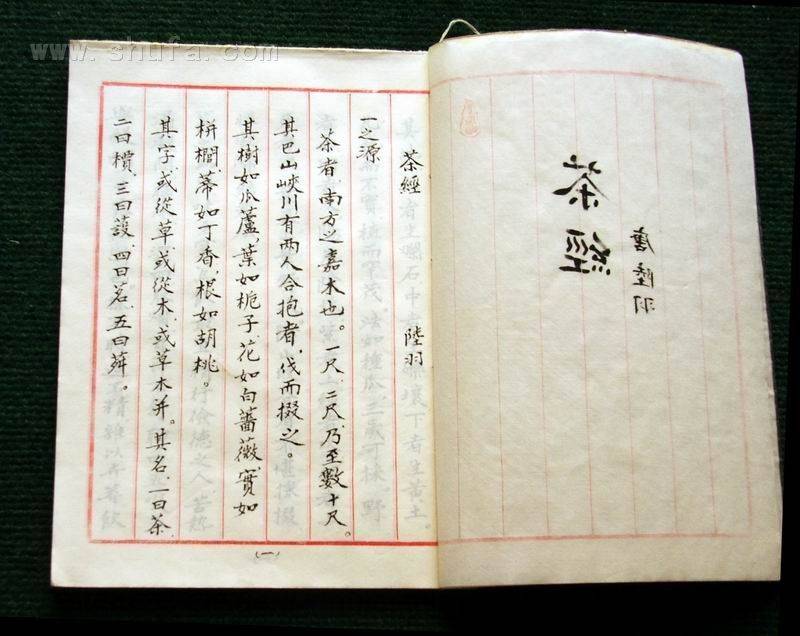 www.shufa.com
茶經
唐 陸羽
茶經 陸羽
一之源
茶者、南方之嘉木也。一尺、二尺、乃至數十尺。
其巴山峽川有两人合抱者，伐而掇之。
其樹如瓜蘆，葉如栀子，花如白薔薇，實如
栟櫚，蒂如丁香，根如胡桃。
其字，或從草，或從木，或草木并。其名，一曰茶、
二曰檟，三曰蔎，四曰茗，五曰荈。
(一)